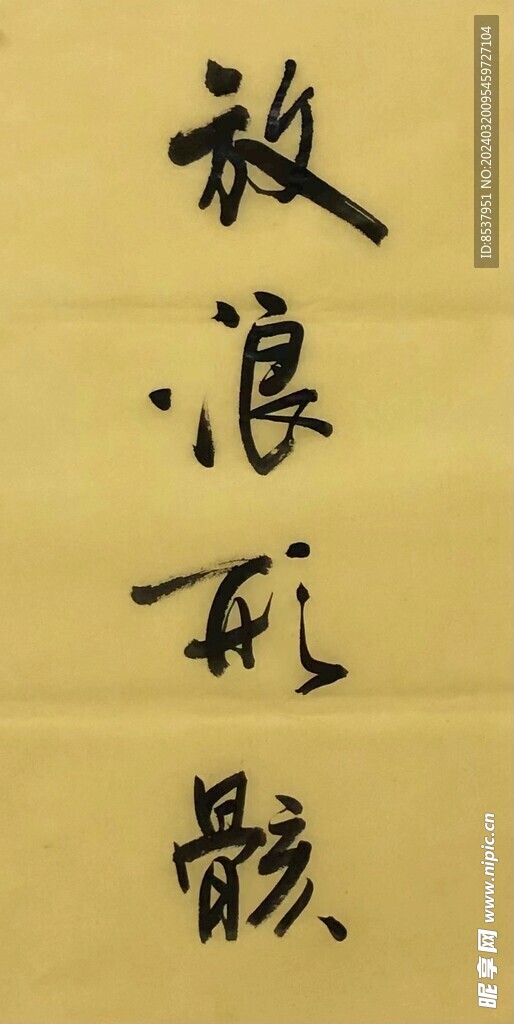 放浪形骸
ID:8537951 NO:20240320095459727104
昵享网 www.nipic.cn